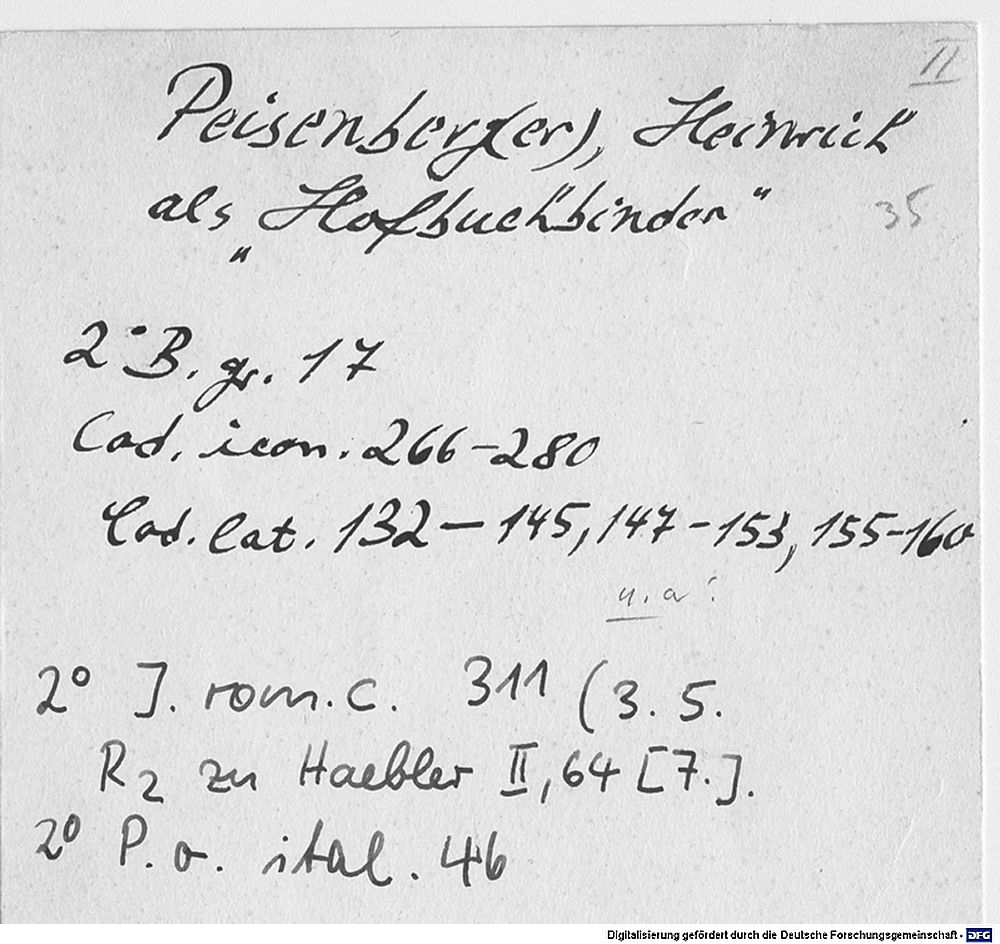 II
Peisenberg(er), Heinrich
als „Hofbuchbinder"
35
2° B. gr. 17
Cod. icon. 266–280
Cod. lat. 132 – 145, 147 – 153, 155–160
u. a.
2° J. rom. c. 311 (3. 5.
R2 zu Haebler II, 64 [7.].
2° P. o. ital. 46
Digitalisierung gefördert durch die Deutsche Forschungsgemeinschaft - DFG